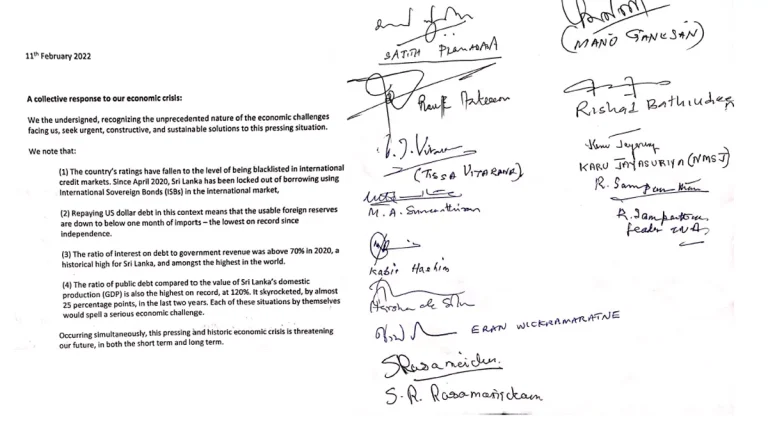 11th February 2022
A collective response to our economic crisis:
We the undersigned, recognizing the unprecedented nature of the economic challenges
facing us, seek urgent, constructive, and sustainable solutions to this pressing situation.
We note that:
(1) The country's ratings have fallen to the level of being blacklisted in international
credit markets. Since April 2020, Sri Lanka has been locked out of borrowing using
International Sovereign Bonds (ISBs) in the international market,
(2) Repaying US dollar debt in this context means that the usable foreign reserves
are down to below one month of imports – the lowest on record since
independence.
(3) The ratio of interest on debt to government revenue was above 70% in 2020, a
historical high for Sri Lanka, and amongst the highest in the world.
(4) The ratio of public debt compared to the value of Sri Lanka's domestic
production (GDP) is also the highest on record, at 120%. It skyrocketed, by almost
25 percentage points, in the last two years. Each of these situations by themselves
would spell a serious economic challenge.
Occurring simultaneously, this pressing and historic economic crisis is threatening
our future, in both the short term and long term.
Rauf Hakeem
(TISSA VITARANA)
M. A. Sumanthiran
Kabir Hashim
Harsha de Silva
ERAN WICKRAMARATNE
S. R. Rasamanickam
(MANO GANESAN)
Rishad Bathiudeen
KARU JAYASURIYA (NMSJ)
R. Sampanthan
R. Sampanthan